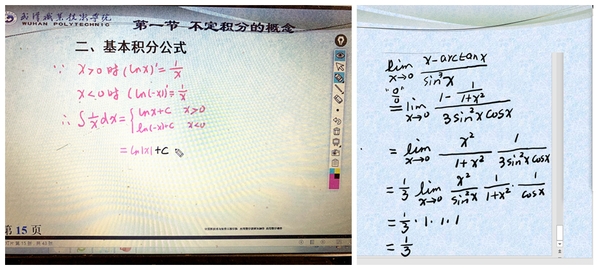 武汉职业技术学院
WUHAN POLYTECHNIC
第一节 不定积分的概念
二、基本积分公式
∵ x>0时 (lnx)'=1/x
x<0时 (ln(-x))'=1/x
∴ ∫1/x dx = { lnx+c x>0
ln(-x)+c x<0
= ln|x|+c
第 15 页
lim x→0 (x-arctanx)/(sin³x)
0/0 = lim x→0 (1 - 1/(1+x²))/(3sin²x cosx)
= lim x→0 x²/(1+x²) 1/(3sin²x cosx)
= 1/3 lim x→0 x²/sin²x · 1/(1+x²) · 1/cosx
= 1/3 · 1 · 1 · 1
= 1/3